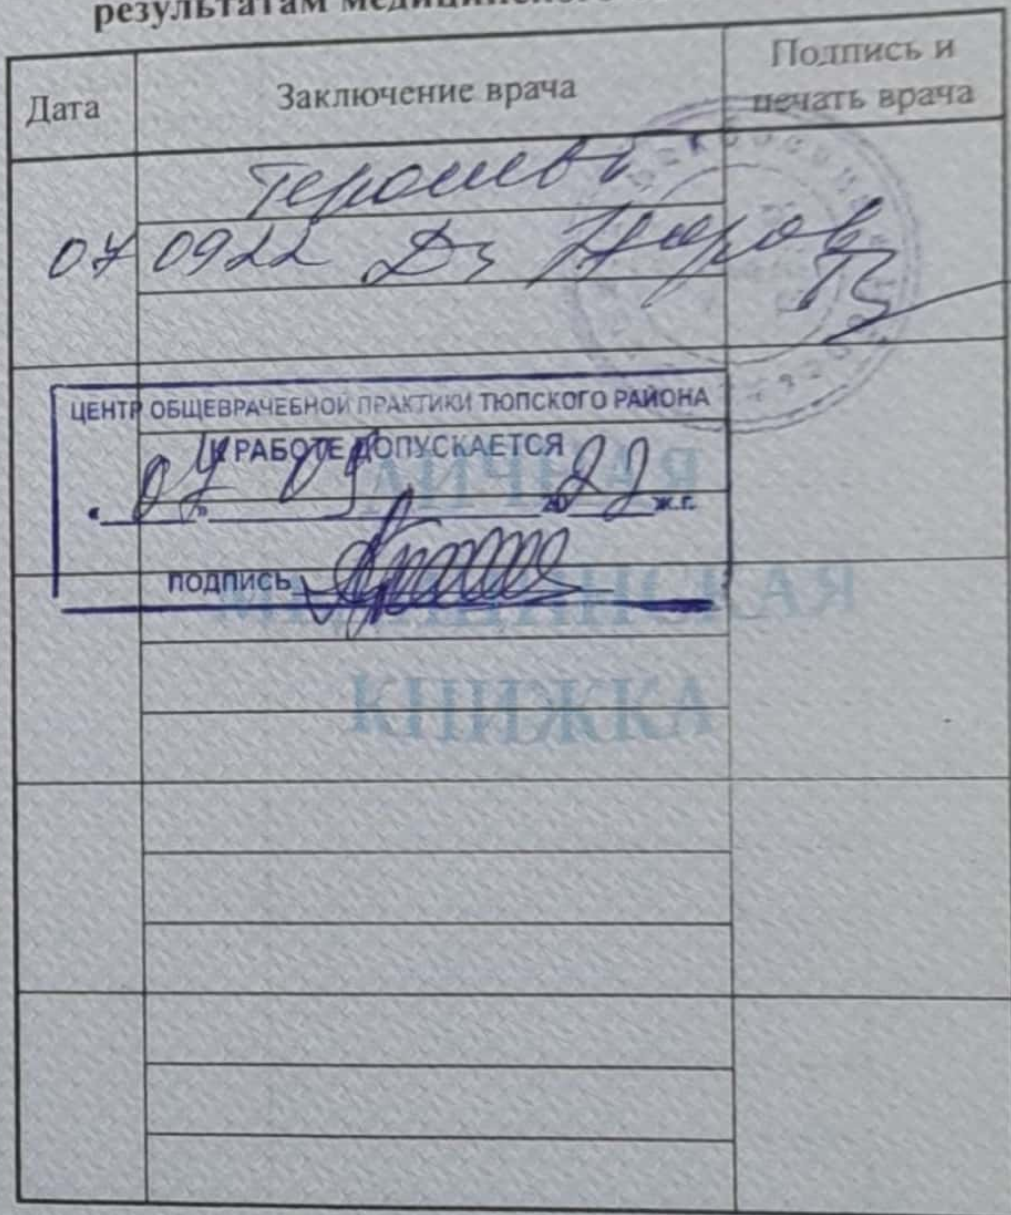 результатам
Дата
Заключение врача
Подпись и
печать врача
07 0922 Ds Здоров
ЦЕНТР ОБЩЕВРАЧЕБНОЙ ПРАКТИКИ ТЮПСКОГО РАЙОНА
К РАБОТЕ ДОПУСКАЕТСЯ
«07» 09 2022 ж.г.
ПОДПИСЬ
ЛИЧНАЯ
МЕДИЦИНСКАЯ
КНИЖКА